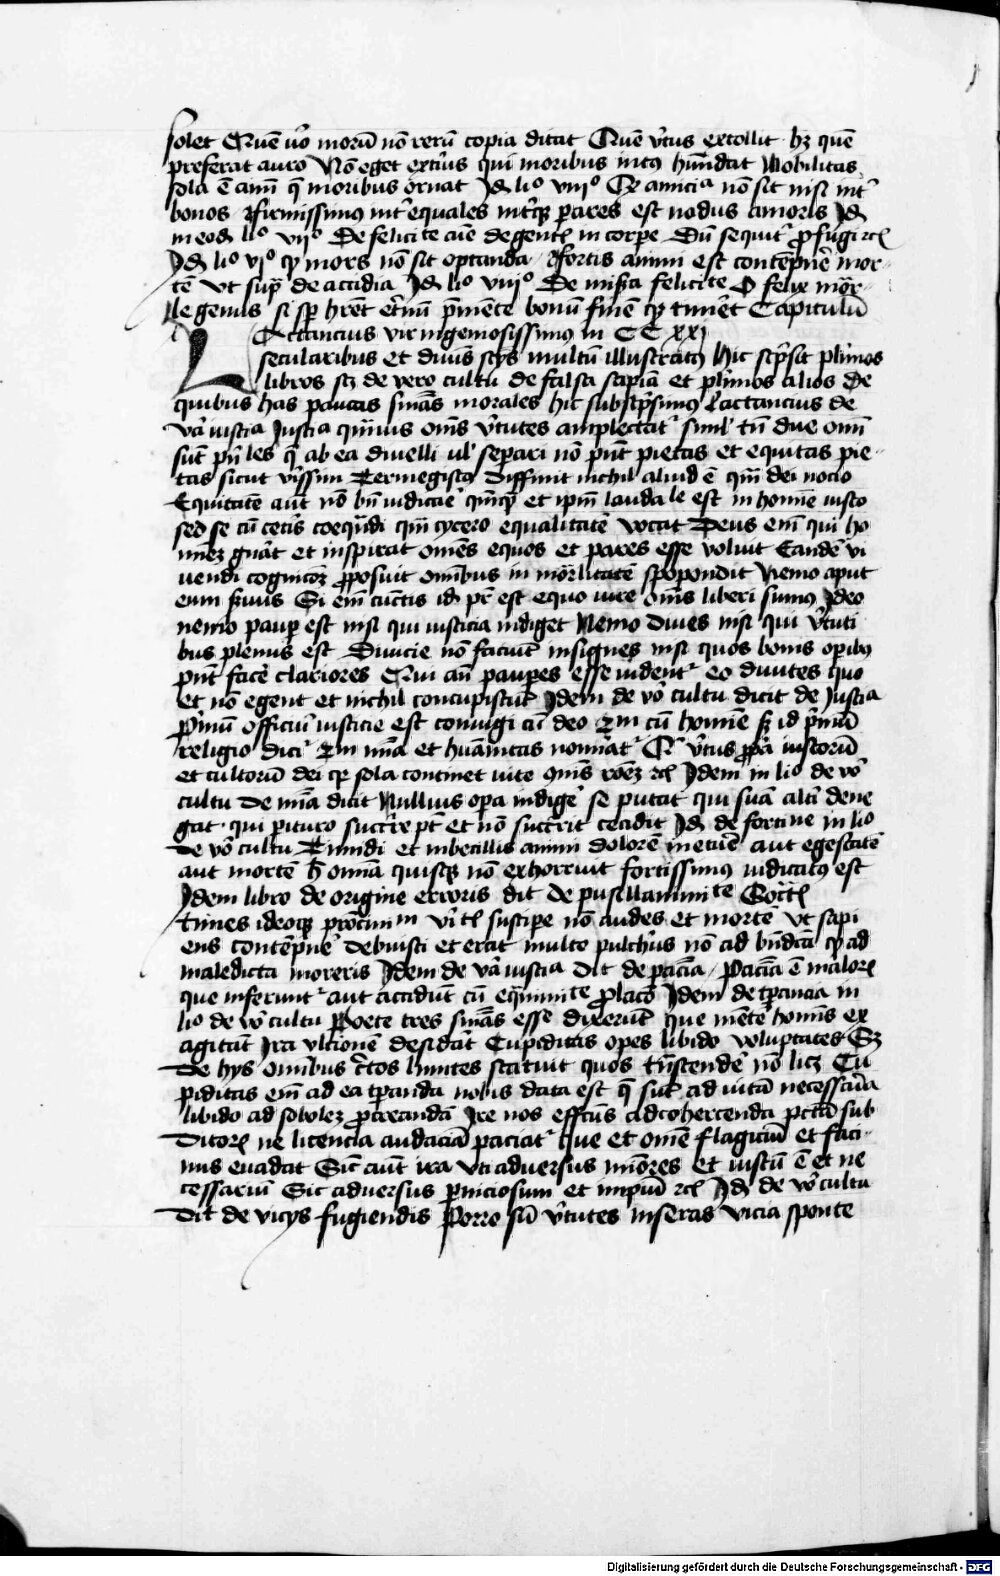 solet Quē u͛o morū nō rerū copia ditat Quē v͛tus extollit hȝ quē
preferat auro Nō eget exti͛us qui moribus int⁹ hūdat Nobilitas
sola ē aīm q̄ moribus ornat Jđ liº viiiº Qr amicia nō sit nisi int͛
bonos firmissimus int͛ equales int͛qȝ pares est nodus amoris Jđ
in eođ liº viiº De felicite cuē degentꝭ in corpe Dū sequit͛ ꝓfugi rcꝭ
Jđ liº vjº qȝ mors nō sit optanda fortis animi est contēpne͛ mor-
tē Ut sup͛ de accidia Jđ liº viiiº De mis͛ia felicite O felix mōr-
le genus si sp̄ hrēt et͛nū p͛mēte bonū finē qȝ timēt Capitulū
Lactancius vir ingeniosissimus in CC xxj
secularibus et diuis scp͛s multū illustrat⁹ Hic scp͛sit plīmos
libros sȝ de vero cultu de falsa sapiā et plīmos alios De
quibus has paucas sniās morales hic subscp͛simus Lactancius de
va͛ iusticia Justicia quīuis om̄s v͛tutes amplectat͛ simł tn̄ due om̄
sūt pn̄les q̄ ab ea diuelli uł separi nō pn̄t pietas et equitas pie-
tas sicut v͛issim Termegist⁹ diffinit nichil aliud ē qm̄ dei nocio
Equitatē aūt nō bn̄ iudicāe qm̄qȝ et ipm̄ lauda le est in homīe iusto
sed se cū cet͛is coequādi qm̄ cycero equalitatē vocat Deus em̄ qui ho
minez gn͛at et inspirat omēs equos et pares esse voluit Eandē vi
uendi cognicōȝ ꝓposuit omībus in mōrlitatē spopondit Nemo aput
eum s͛uus Si em̄ cūctis iđ pr̄ est equo iure om̄s liberi sumus Jdeo
nemo paup est nisi qui iusticia indiget Nemo diues nisi qui v͛tuti
bus plenus est Diuicie nō faciūt insignes nisi quos bonis opibus
pn̄t face͛ clariores Qui aūt paupes esse uident͛ eo diuites quo
et nō egent et nichil concupiscūt Jdem de vo͛ cultu dicit de Justicia
Pīmū officiū iusticie est coniugi cū deo 2m cū homīe sȝ id pīmū
religio dicit͛ 2m mīa et huāitas nomīat͛ Q͛ v͛tus ꝓpa iustorū
et cultorū dei qr sola continet uite om̄is rōeȝ rcꝭ Jdem in liº de vo͛
cultu De mīa dicit Nullius opa indige͛ se putat qui suā alti͛ dene
gat qui pituro succ͛re pt̄ et nō succ͛rit occidit Jđ de fortine in liº
de vo͛ cultu Timidi et inbecillis animi dolorē metue͛ aut egestatē
aut mortē h̄ omīa quisqȝ nō exhorruit fortissimus iudicat⁹ est
Jdem libro de origine erroris dit De pusillanimite Socratꝭ
times ideoqȝ uꝛ͛tꝭ suscipe nō audes et mortē Ut sapi
ens contēpne͛ debuisti et erat multo pulchi͛us nō ad bn̄dicta qȝ ad
maledicta moreris Jdem de va͛ iusticia Dit de paciēcia Paciēcia ē maloꝝ
que inferunt͛ aut accidūt cū equāimite ꝓlaco͛ Jdem de tp̄ancia in
liº de vo͛ cultu Poete tres sniās esse dixerūt que mētē homīs ex
agitāt Jra vlcionē desidat͛ Cupiditas opes libido voluptates Sȝ
De hys omībus c͛tos limites statuit quos trāscende͛ nō licȝ Cu
piditas em̄ ad ea tp̄anda nobis data est q̄ sūt ad uitā necessāia
libido ad sobolez ꝓcreandā Jre nos effcūs ad cohercenda pccā sub
ditorꝭ ne licencia audacia paciat͛ que et omē flagiciū et faci-
nus euadat Sic aūt ira uti aduersus mīores et iustū ē et ne
cessariū Sic aduersus pniciosum et impiū rcꝭ Jđ de vo͛ cultu
Dit de vicys fugiendis Porro siū v͛tutes inseras vicia sponte
Digitalisierung gefördert durch die Deutsche Forschungsgemeinschaft - DFG